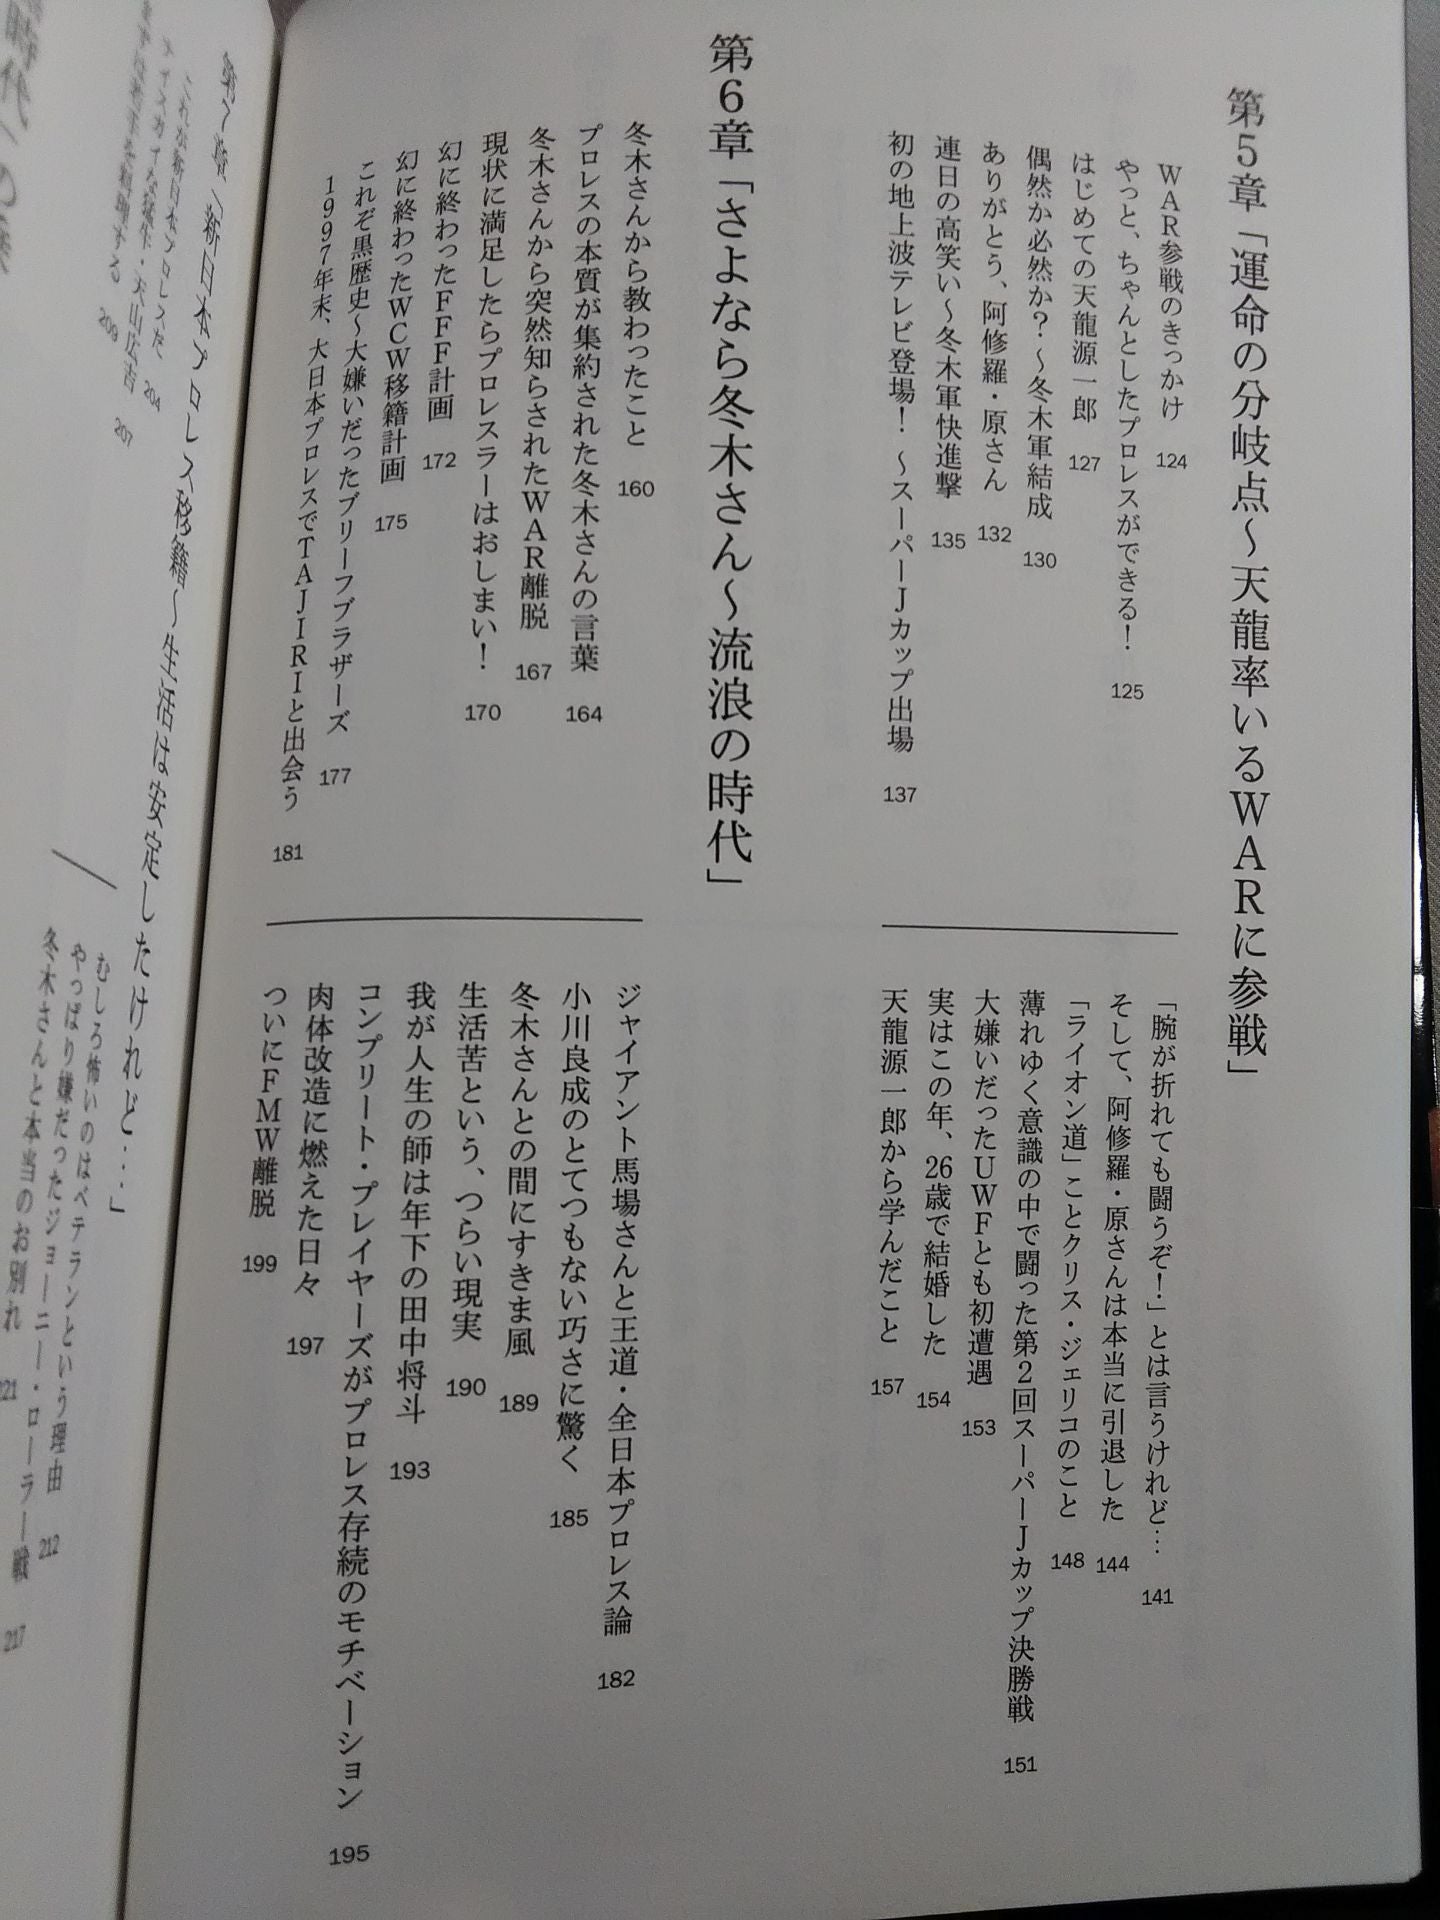 第5章「運命の分岐点〜天龍率いるWARに参戦」
WAR参戦のきっかけ 124
やっと、ちゃんとしたプロレスができる！ 125
はじめての天龍源一郎 127
偶然か必然か？〜冬木軍結成 130
ありがとう、阿修羅・原さん 132
連日の高笑い〜冬木軍快進撃 135
初の地上波テレビ登場！〜スーパーJカップ出場 137
「腕が折れても闘うぞ！」とは言うけれど… 141
そして、阿修羅・原さんは本当に引退した 144
「ライオン道」ことクリス・ジェリコのこと 148
薄れゆく意識の中で闘った第2回スーパーJカップ決勝戦 151
大嫌いだったUWFとも初遭遇 153
実はこの年、26歳で結婚した 154
天龍源一郎から学んだこと 157
第6章「さよなら冬木さん〜流浪の時代」
冬木さんから教わったこと 160
プロレスの本質が集約された冬木さんの言葉 164
冬木さんから突然知らされたWAR離脱 167
現状に満足したらプロレスラーはおしまい！ 170
幻に終わったFFF計画 172
幻に終わったWCW移籍計画 175
これぞ黒歴史〜大嫌いだったブリーフブラザーズ 177
1997年末、大日本プロレスでTAJIRIと出会う 181
ジャイアント馬場さんと王道・全日本プロレス論 182
小川良成のとてつもない巧さに驚く 185
冬木さんとの間にすきま風 189
生活苦という、つらい現実 190
我が人生の師は年下の田中将斗 193
コンプリート・プレイヤーズがプロレス存続のモチベーション 195
肉体改造に燃えた日々 197
ついにFMW離脱 199
第7章「新日本プロレス移籍〜生活は安定したけれど…」
これが新日本プロレスだ 204
・天山広吉 207
する 209
むしろ怖いのはベテランという理由 212
やっぱり嫌だったジョーニー・ローラー戦 217
冬木さんと本当のお別れ 221